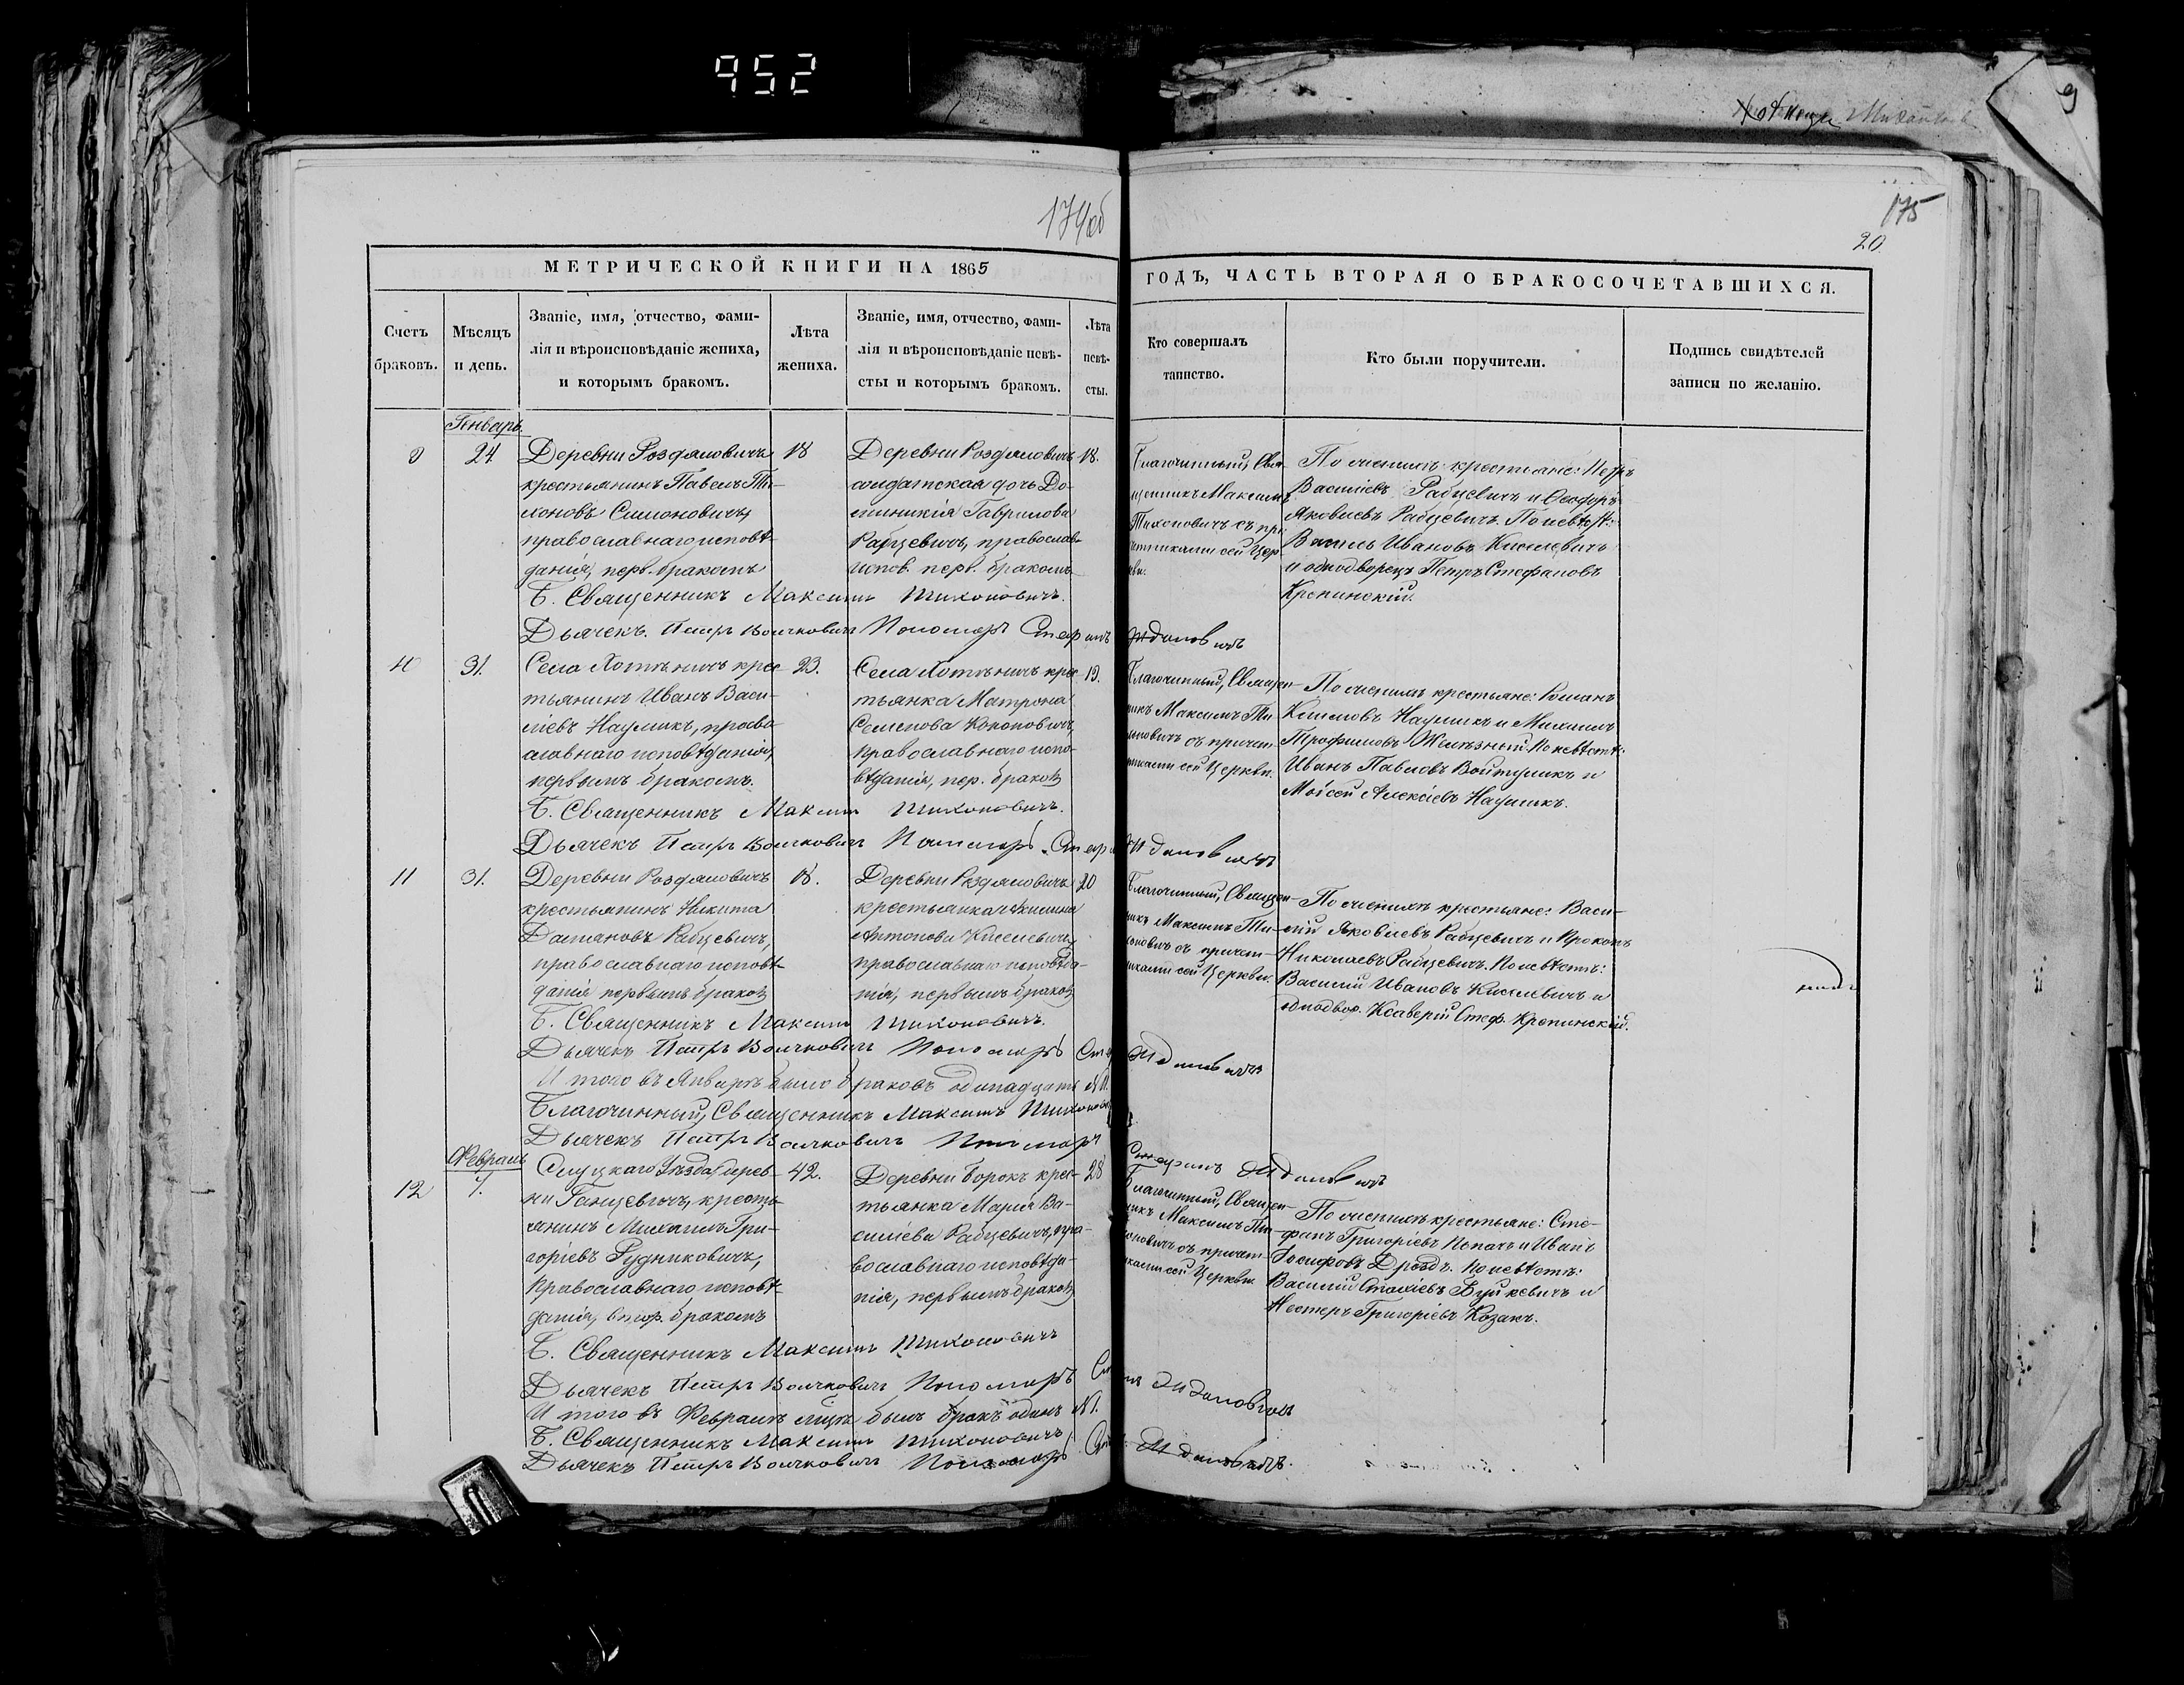 952
9
174об
175
20.
МЕТРИЧЕСКОЙ КНИГИ НА 1865
ГОДЪ, ЧАСТЬ ВТОРАЯ О БРАКОСОЧЕТАВШИХСЯ.
Счетъ браковъ.
Мѣсяцъ и день.
Званіе, имя, отчество, фами-
лія и вѣроисповѣданіе жениха,
и которымъ бракомъ.
Лѣта жениха.
Званіе, имя, отчество, фами-
лія и вѣроисповѣданіе невѣ-
сты и которымъ бракомъ.
Лѣта невѣ-
сты.
Кто совершалъ
таинство.
Кто были поручители.
Подпись свидѣтелей
записи по желанію.
Генварь.
24
Деревни Роздяловичъ
крестьянинъ Павелъ Ти-
хоновъ Симоновичъ,
православнаго исповѣ-
данія, перв. бракомъ
18
Деревни Роздяловичъ
солдатская дочь До-
миникія Гаврилова
Рабцевичъ, православ.
испов. перв. бракомъ
18.
Благочинный, Свя-
щенникъ Максимъ
Тихоновичъ съ при
четниками сей Цер
кви.
По женихѣ крестьяне: Петръ
Василіевъ Рабцевичъ и Ѳеодоръ
Яковлевъ Рабцевичъ. По невѣстѣ:
Василь Ивановъ Киселевичъ
и однодворецъ Петръ Стефановъ
Крепинскій.
Б. Священникъ Максимъ Тихоновичъ.
Дьячекъ Петръ Волчковичъ Пономарь Стефанъ Ждановичъ
31.
Села Хотѣничъ крес
тьянинъ Иванъ Васи-
ліевъ Наумикъ, право
славнаго исповѣданія,
первымъ бракомъ.
23.
Села Хотѣничъ крес
тьянка Матрона
Семенова Кононовичъ,
православнаго испо-
вѣданія, пер. бракомъ
19.
Благочинный, Священ-
никъ Максимъ Ти
хоновичъ съ причет
никами сей Церкви.
По женихѣ крестьяне: Романъ
Климовъ Наумикъ и Михаилъ
Трофимовъ Желѣзный. По невѣстѣ:
Иванъ Павловъ Войтулякъ и
Мойсей Алексѣевъ Наумикъ.
Б. Священникъ Максимъ Тихоновичъ.
Дьячекъ Петръ Волчковичъ Пономарь Стефанъ Ждановичъ
11
31.
Деревни Роздяловичъ
крестьянинъ Никита
Даміановъ Рабцевичъ,
православнаго исповѣ-
данія первымъ бракомъ
18.
Деревни Роздяловичъ
крестьянка Акилина
Антонова Киселевичъ,
православнаго исповѣда-
нія, первымъ бракомъ
20
Благочинный, Священ-
никъ Максимъ Ти-
хоновичъ съ причет-
никами сей Церкви.
По женихѣ крестьяне: Васи-
лій Яковлевъ Рабцевичъ и Прокопъ
Николаевъ Рабцевичъ. По невѣстѣ:
Василій Ивановъ Киселевичъ и
однодвор. Ксаверій Стеф. Крепинскій.
Б. Священникъ Максимъ Тихоновичъ.
Дьячекъ Петръ Волчковичъ Пономарь Стеф Ждановичъ
Итого въ Январѣ было браковъ одинадцать № 11.
Благочинный, Священникъ Максимъ Тихонович
Дьячекъ Петръ Волчковичъ Пономарь Стефанъ Ждановичъ
Февраль
12
7.
Слуцкаго Уѣзда, дерев-
ни Ганцевичъ, кресть
янинъ Михаилъ Гри-
горіевъ Рудниковичъ,
православнаго исповѣ-
данія, втор. бракомъ
42.
Деревни Борокъ крес-
тьянка Марія Ва-
силіева Рабцевичъ, пра-
вославнаго исповѣда-
нія, первымъ бракомъ
28
Благочинный, Священ-
никъ Максимъ Ти-
хоновичъ съ причет-
никами сей Церкви
По женихѣ крестьяне: Сте-
фанъ Григоріевъ Копачъ и Иванъ
Іосифовъ Дроздъ. По невѣстѣ:
Василій Стахіевъ Буйкевичъ и
Нестеръ Григоріевъ Козакъ.
Б. Священникъ Максимъ Тихоновичъ
Дьячекъ Петръ Волчковичъ Пономарь Ст Ждановичъ
Итого въ Февралѣ мѣсяцѣ былъ бракъ одинъ № 1.
Б. Священникъ Максимъ Тихоновичъ
Дьячекъ Петръ Волчковичъ Пономарь Ст Ждановичъ.